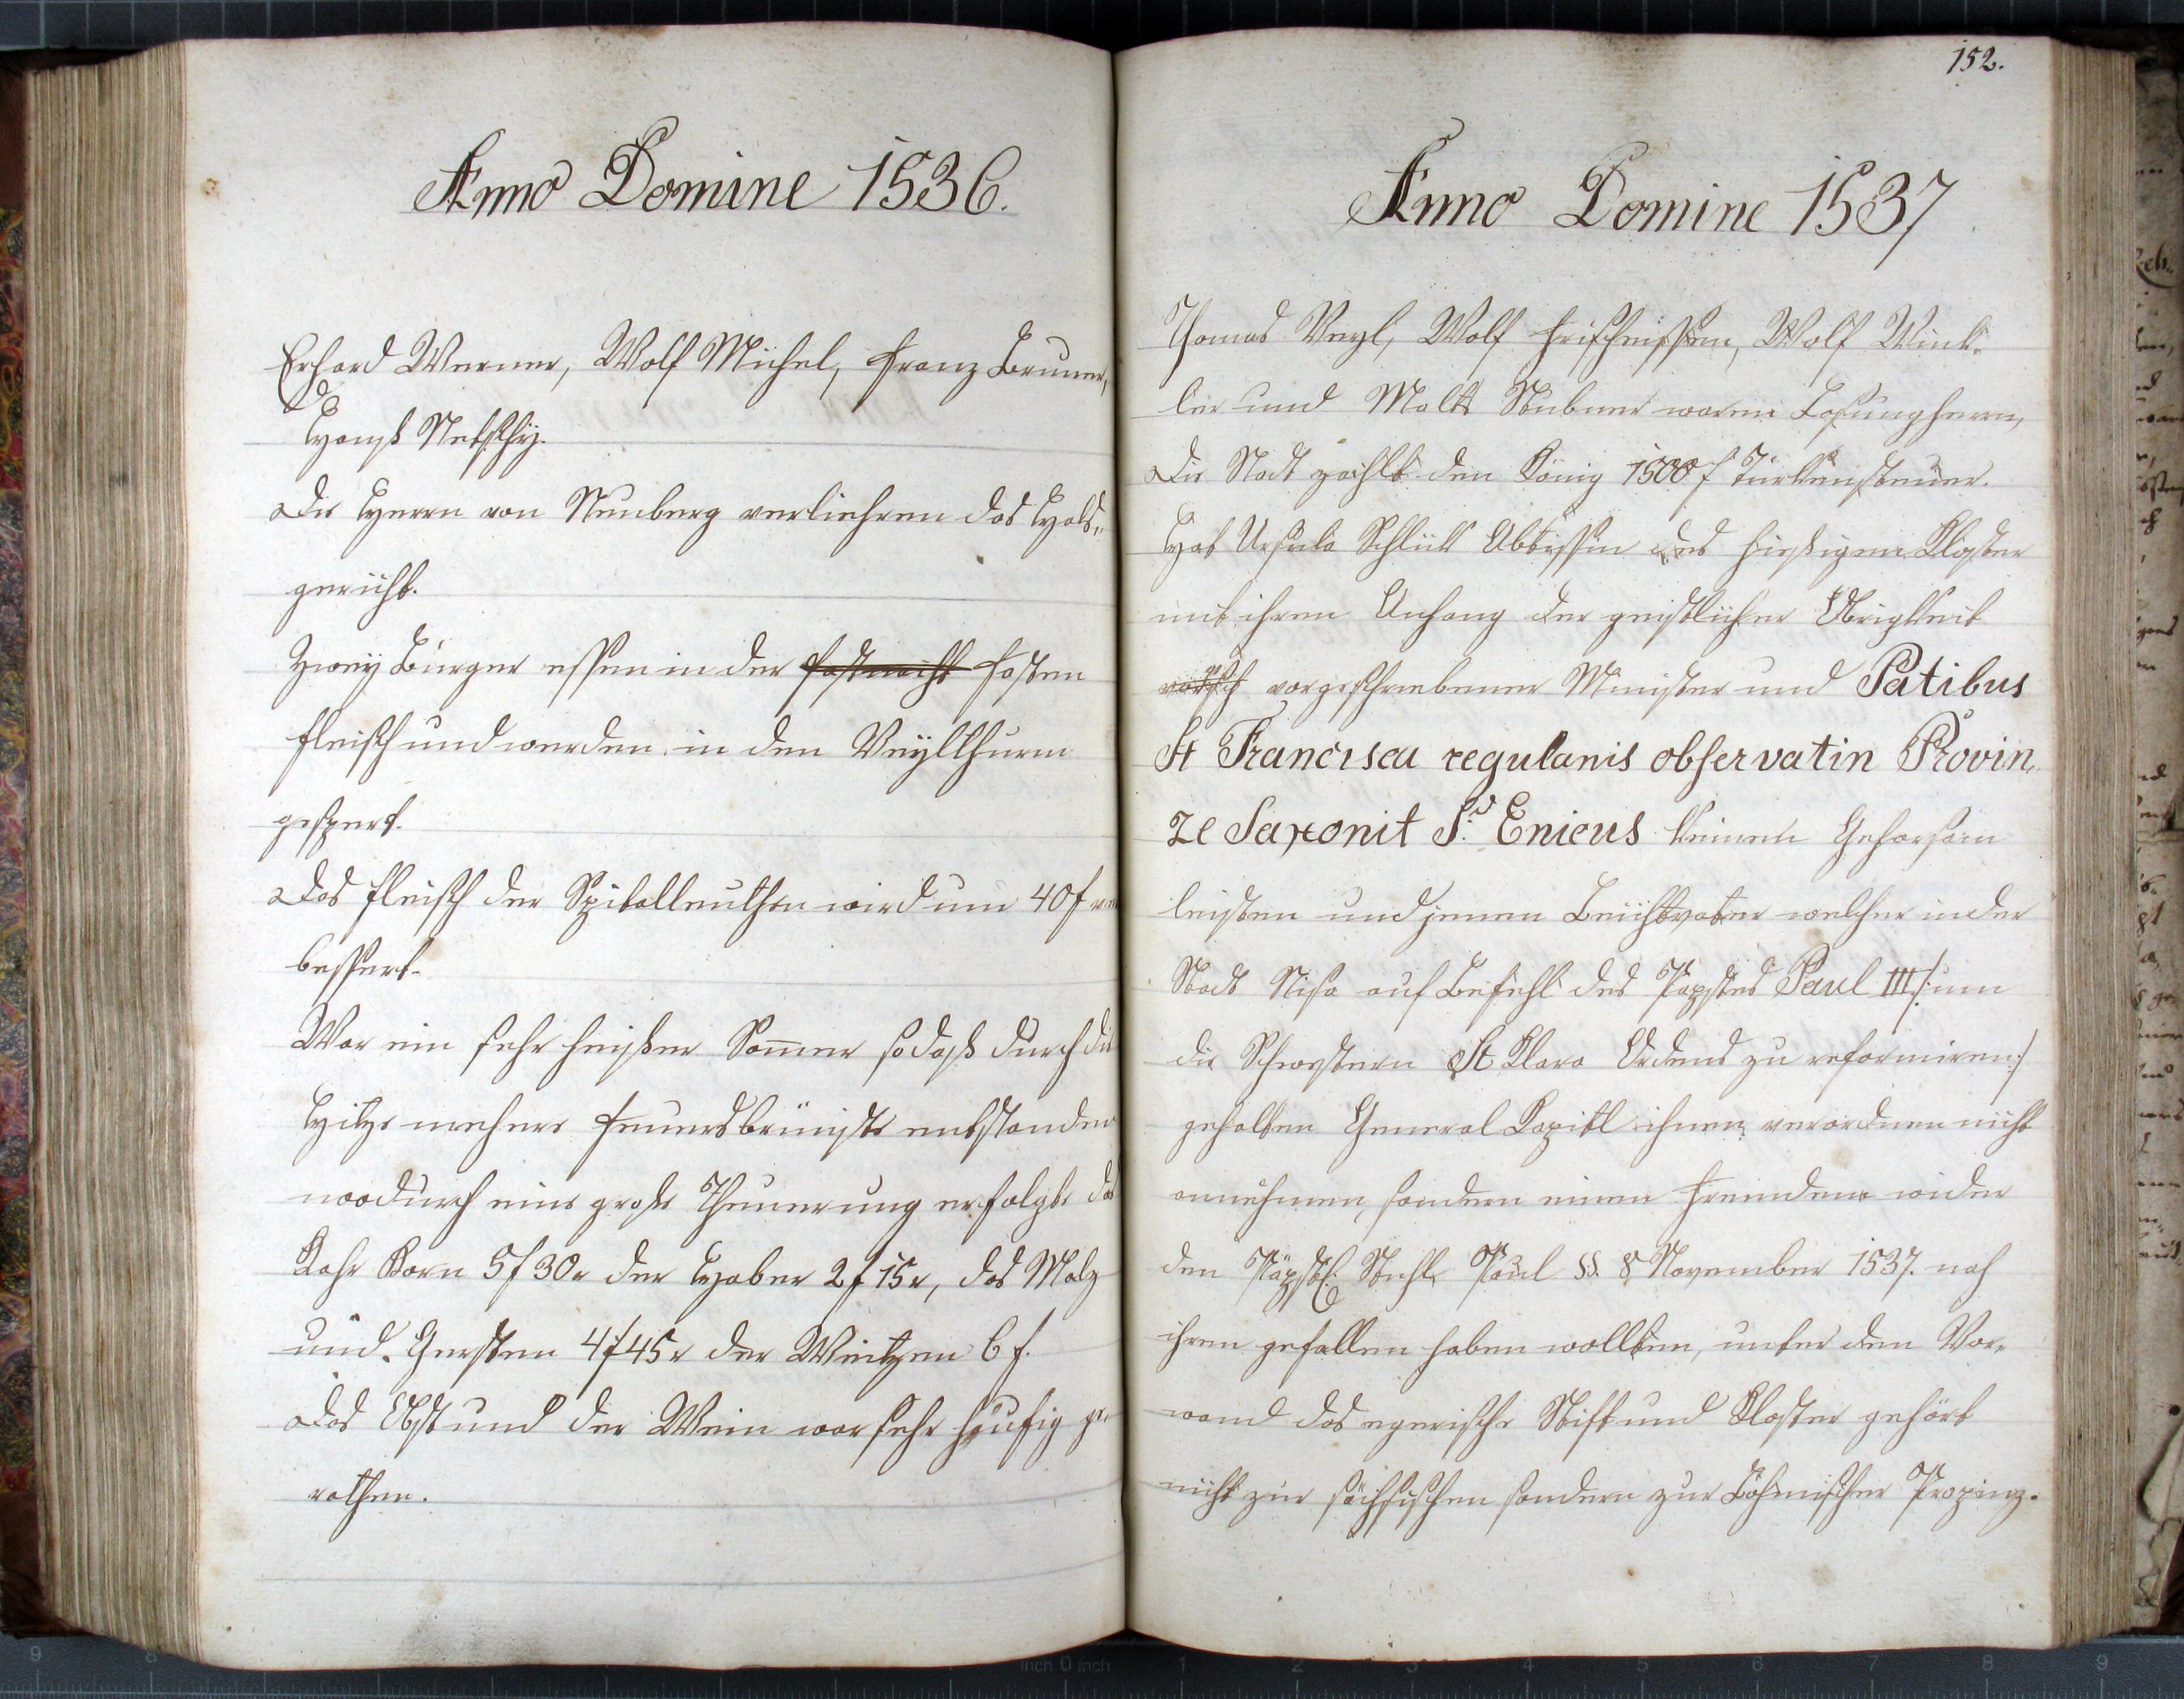 Anno Domine 1536.
Erhard Werner, Wolf Michel, Franz Bruner,
Hanß
Die Herrn von Neuberg verliehren das Hals„
gericht.
Zweÿ Bürger essen in der Fastnacht Fasten
Fleisch und werden in den Veÿlthurm
gespert.
Das Fleisch der Spitalleuthen wird um 40 f ver
bessert.
War ein sehr heißer Sommer so daß durch die
Hitze mehere Feuersbrünste entstanden
wodurch eine große Theuerung erfolgte das
Kahr Korn 5 f 30 r der Haber 2 f 15 r, das Malz
und Gersten 4 f 45 r der Weitzen 6 f.
Das Obst und der Wein war sehr häufig ge„
rathen.
152.
Anno Domine 1537
Thomas Wolf Wolf Wink„
ler und waren Losungherrn,
Die Stadt zahlt den König 1500 f Türkensteuer.
Hat Ursula Schlick Abtissin des hiesigen Kloster
mit ihren Anhang der geistlicher Obrigkeit
vorgeschriebener Minister und Patibus
St Franciscu regulanis observatin Provin„
ze Saxonit S. Enicus keinen Gehorsam
leisten und jenen Beichtvater welcher in der
Stadt Nisa auf Befehl des Papstes Paul III /: um
die Schwestern St Klara Ordens zu reformiren :/
gehalten General Kapitl ihnen verordnen nicht
annehmen, sondern einen Fremden wider
den Päpstl. Stuhl Paul §§. 8 November 1537. nach
ihren gefallen haben wollten, unter den Vor„
wand das egerische Stift und Kloster gehört
nicht zur sächsischen sondern zur Böhmischer Provinz.